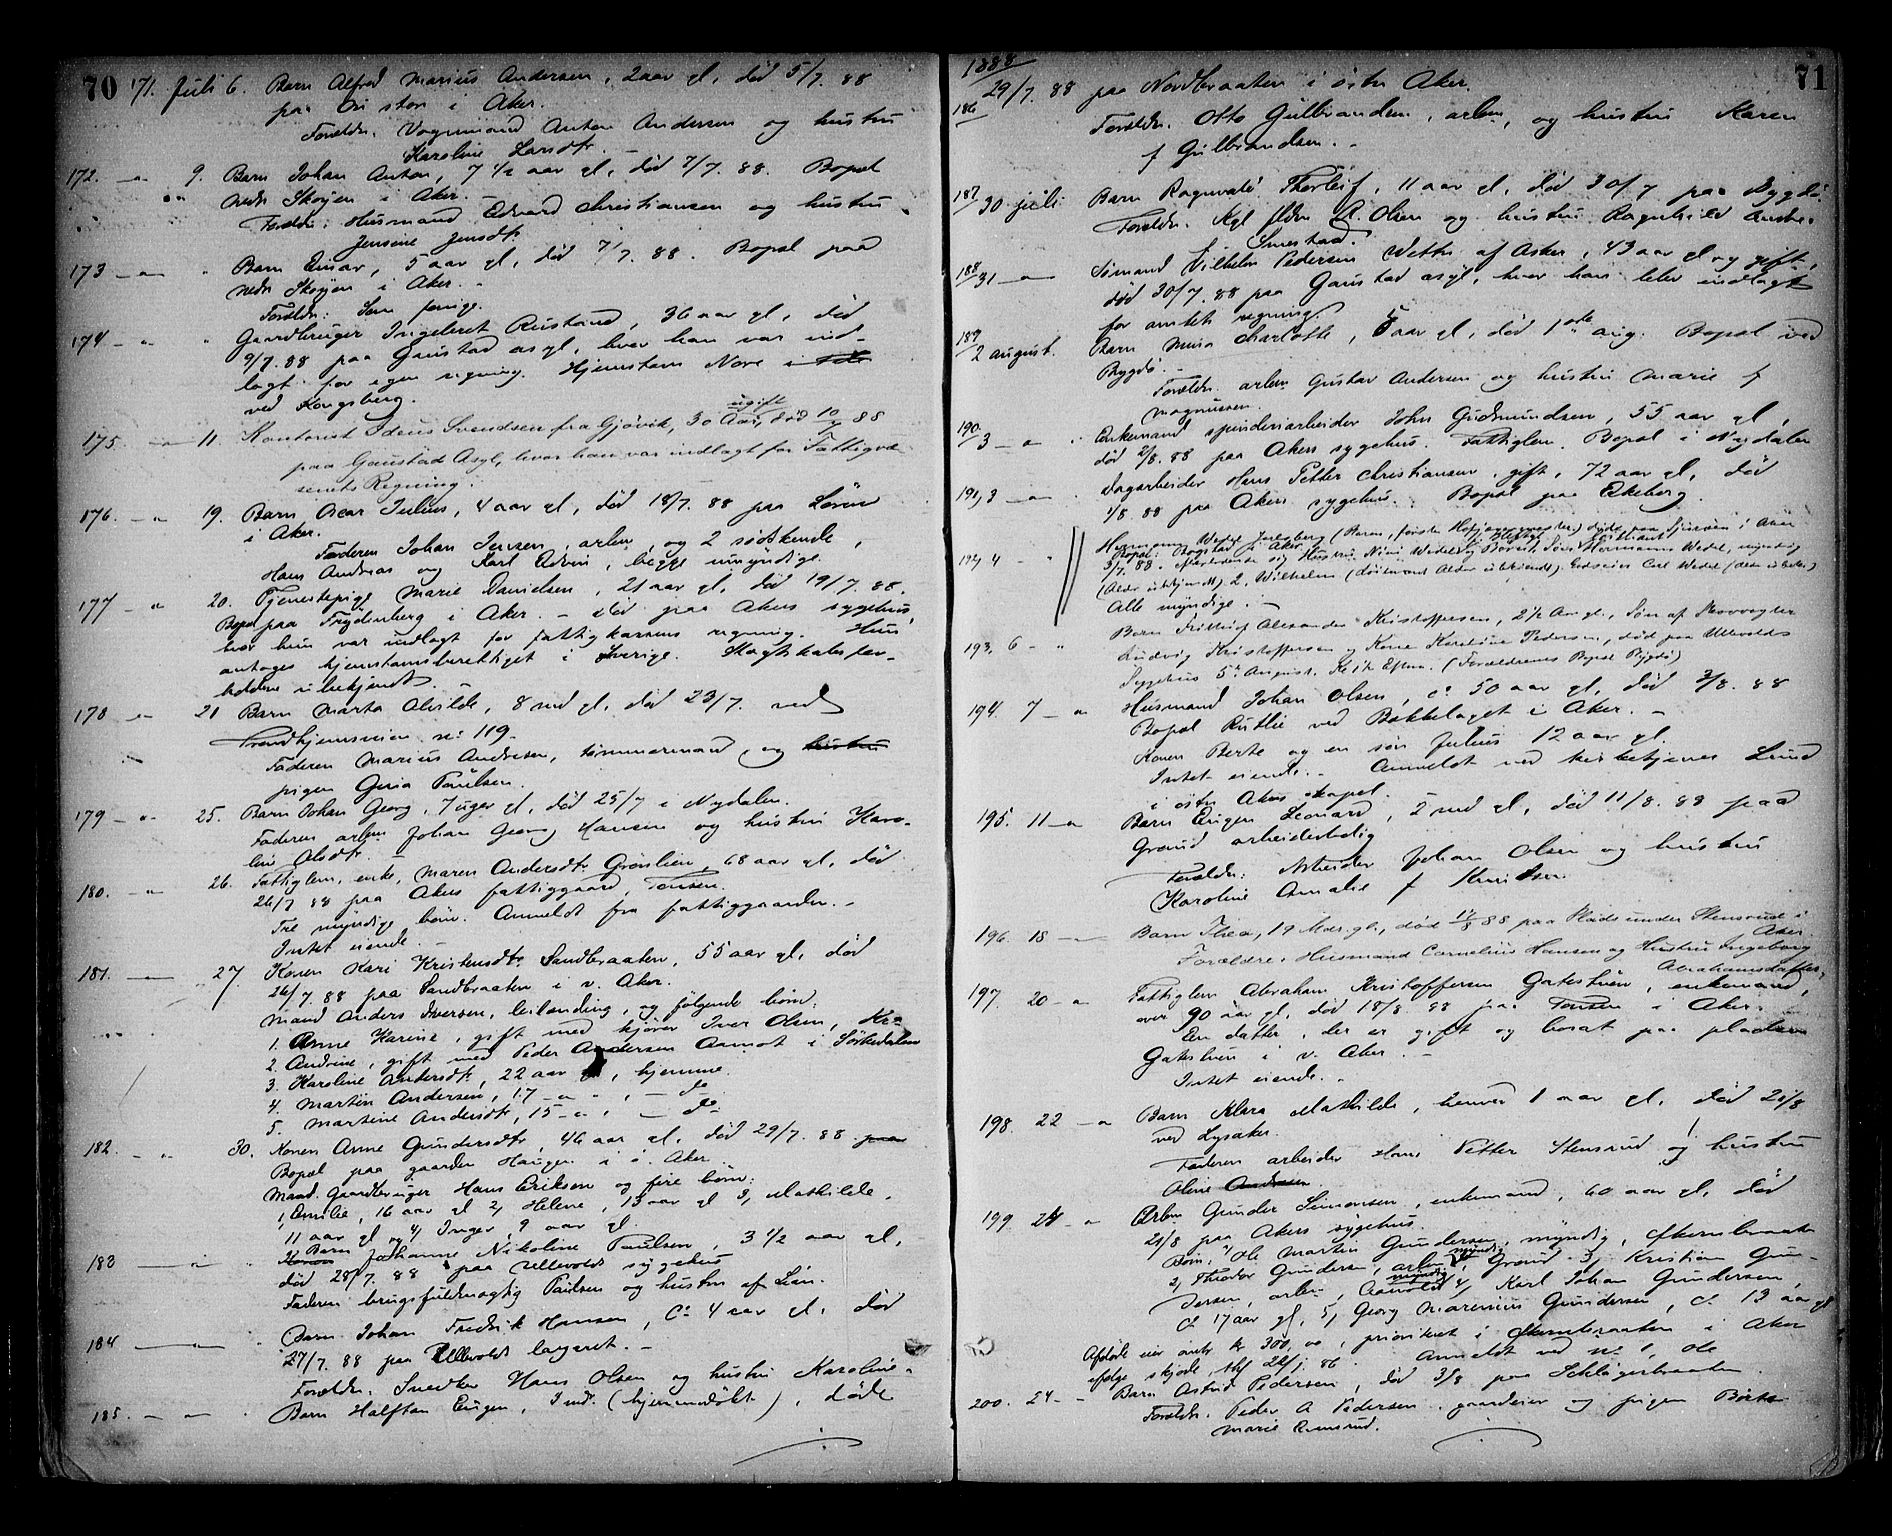 70
171. Juli 6. Barn Alfred Marius Andersen, 2 aar gl, død 5/7 88
paa i Aker.
Foreldr. Vognmand Anton Andersen og hustru
Karoline Larsdtr. –
172. – " 9. Barn Johan Anton, 7 1/2 aar gl, død 7/7. 88. Bopæl
nedr Skøyen i Aker.
Foreldr: Husmand Edvard Christiansen og hustru
Jensine Jensdtr.
173 – " – " Barn Einar, 5 aar gl, død 7/7. 88. Bopæl paa
nedr Skøyen i Aker. –
Foreldr: Som forrige.
174 – " – " Gaardbruger Ingebret Rustand, 36 aar gl, død
9/7. 88 paa Gaustad asyl, hvor han var ind-
lagt for egen regning. Hjemstavn Nore i
ved Kongsberg.
175. – " – 11. Kontorist Svendsen fra Gjøvik, 30 Aar, ugift, død 10/7 88
paa Gaustad Asyl, hvor han var indlagt for Fattigvæ-
senets Regning.
176. – " 19. Barn Oscar Julius, 4 aar gl, død 18/7. 88 paa Løren
i Aker.
Faderen Johan Jensen, arbm, og 2 sødskende,
Hans Andreas og Karl Edvin, begge umyndige.
177 – " 20. Tjenestepige Marie Danielsen, 21 aar gl, død 19/7. 88.
Bopæl paa Frydenberg i Aker. – død paa Akers sygehus,
hvor hun var indlagt for fattigkassens regning. Hun
antages hjemstavnsberettiget i Sverige. Slægtskabsfor-
holdene ubekjendt.
178 – " – 21 Barn Marta Alvilde, 8 md gl, død 23/7. ved
Trondhjemsveien n: 119.
Faderen Marius Andresen, tømmermand, og hustru
pigen Paulsen.
179 – " – 25. Barn Johan Georg, 7 uger gl, død 25/7 i Nydalen.
Faderen arbm Johan Georg Hansen og hustru Karo-
line Olsdtr. –
180. – " 26. Fattiglem, enke, Maren Andersdtr Grønlien, 68 aar gl, død
26/7 88 paa Akers fattiggaard, Tonsen.
Tre myndige børn. Anmeldt fra fattiggaarden. –
Intet eiende. –
181. – 27. Konen Kari Kristensdtr Sandbraaten, 55 aar gl, død
26/7. 88 paa Sandbraaten i v. Aker.
Mand Anders Iversen, leilænding, og følgende børn:
1. Anne Karine, gift med kjører Iver Olsen, Kr.a
2. Andrine, gift med Peder Andersen Aamot i Sørkedalen
3. Karoline Andersdtr, 22 aar gl, hjemme.
4. Martin Andersen, 17 – " – do
5. Martine Andersdtr, 15 – " – do
182. – " 30. Konen Anne Gundersdtr, 46 aar gl. død 29/7. 88 paa
Bopæl paa gaarden Haugen i ø. Aker.
Mand. Gaardbruger Hans Eriksen og fire børn:
1, Emilie, 16 aar gl 2, Helene, 13 aar gl 3, Mathilde,
11 aar gl og 4, Inger, 9 aar gl.
183 – " – " Konen Barn Johanne Nikoline Paulsen, 3 1/2 aar gl,
død 28/7. 88 paa Ullevolds sygehus
Faderen brugsfuldmægtig Paulsen og hustru af Lian.
184 – " Barn Johan Fredrik Hansen, c: 4 aar gl, død
27/7. 88 paa Ullevolds lazaret. –
Foreldr. Snedker Hans Olsen og hustru Karoline.
185. – " – " Barn Halftan Eugen, 7 md. (hjemmedøbt), døde

1888
71
186 29/7. 88 paa Nordbraaten i østre Aker.
Foreldr. Otto Gulbrandsen, arbm, og hustru Karen
f Gulbrandsen. –
187 30 juli. Barn Ragnvald Thorleif, 11 aar gl, død 30/7 paa Bygdø.
Foreldr. Kgl. Olsen og hustru Ragnhild
Smestad.
188 31 – " Sømand Vilhelm Pedersen Wettre af Asker, 43 aar gl og gift,
død 30/7. 88 paa Gaustad asyl, hvor han blev indlagt
for amtets regning.
189 2 august. Barn Charlotte, 5 aar gl, død 1ste aug. Bopæl ved
Bygdø. –
Foreldr. arbm Gustav Andersen og hustru Marie f
Magnussen.
190 3 – " – " Enkemand spinderiarbeider John Gudmundsen, 55 aar gl,
død 2/8. 88 paa Akers sygehus. Fattiglem. Bopæl i Nydalen
191, 3 – " Dagarbeider Hans Petter Christiansen, gift, 72 aar gl, død
1/8. 88 paa Akers sygehus. Bopæl paa Ekeberg.
192, 4 – " Hermann Wedel Jarlsberg (Baron, første Hofjægermester) døde paa i Aker
Bopæl: Bogstad i Aker.
3/7. 88. Efterladende sig Hustru Wedel og Børn: 1. Søn Hermann Wedel, myndig
(Alder ubekjendt). 2, Wilhelm (Løitnant Alder ubekjendt). Carl Wedel
Alle myndige. –
193, 6 – " Barn Fritthjof Alexander Kristoffersen, 2 1/2 Aar gl., Søn af
Ludvig Kristoffersen og Kone Karoline Pedersen, død paa Ullevolds
Sygehus 5te August. Kl 1 1/2 Efterm. (Forældrenes Bopæl Bygdø)
194. 7 – " Husmand Johan Olsen, c: 50 aar gl, død 3/8. 88
Bopæl Rutlie ved Bækkelaget i Aker. –
Konen Berte og en søn Julius 12 aar gl.
Intet eiende. – Anmeldt ved kirketjener Lund
i østre Akers kapel.
195. 11 – " Barn Eugen Leonard, 2 md gl, død 11/8. 88 paa
Grønd arbeiderbolig
Foreldr: Arbeider Johan Olsen og hustru
Karoline Amalie f
196. 18 – Barn Thea, 19 Mdr. gl., død 17/8 88 paa Plads under Stensrud i
Aker.
Forældre: Husmand Cornelius Hansen og Hustru Ingeborg
Abrahamsdatter.
197. 20 – " Fattiglem Abraham Kristoffersen Gateshuen, enkemand,
over 90 aar gl, død 18/8. 88 paa Tonsen i Aker.
En datter, der er gift og bosat paa pladsen
Gateshuen i v. Aker. –
Intet eiende. –
198. 22 – " Barn Klara Mathilde, henved 1 aar gl, død 21/8
ved Lysaker.
Faderen arbeider Hans Petter Stensrud og hustru
Oline Andersen.
199. 24 – " Arbm Gunder Simonsen, enkemand, 60 aar gl, død
21/8 paa Akers sygehus.
Børn: 1, Ole Martin Gundersen, myndig,
2, Theodor Gundersen, arbm, myndig Grønd 3, Kristian Gun-
dersen, arbm, myndig 4, Karl Johan Gundersen,
c: 17 aar gl, 5, Georg Marenius Gundersen, c: 13 aar gl
Afdøde eier kr 300,00, prioritet i i Aker
ifølge skjøde Anmeldt ved n: 1, Ole
200. 24 – " Barn Astrid Pedersen, død 3/8 paa
Foreldr. Peder A Pedersen, gaardeier og pigen Berte
Marie